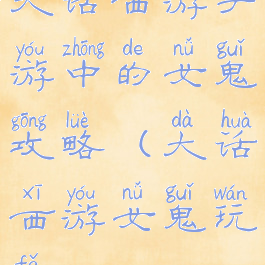 大话西游手
yóu zhōng de nǚ guǐ
游中的女鬼
gōng lüè dà huà
攻略（大话
xī yóu nǚ guǐ wán
西游女鬼玩
fǎ